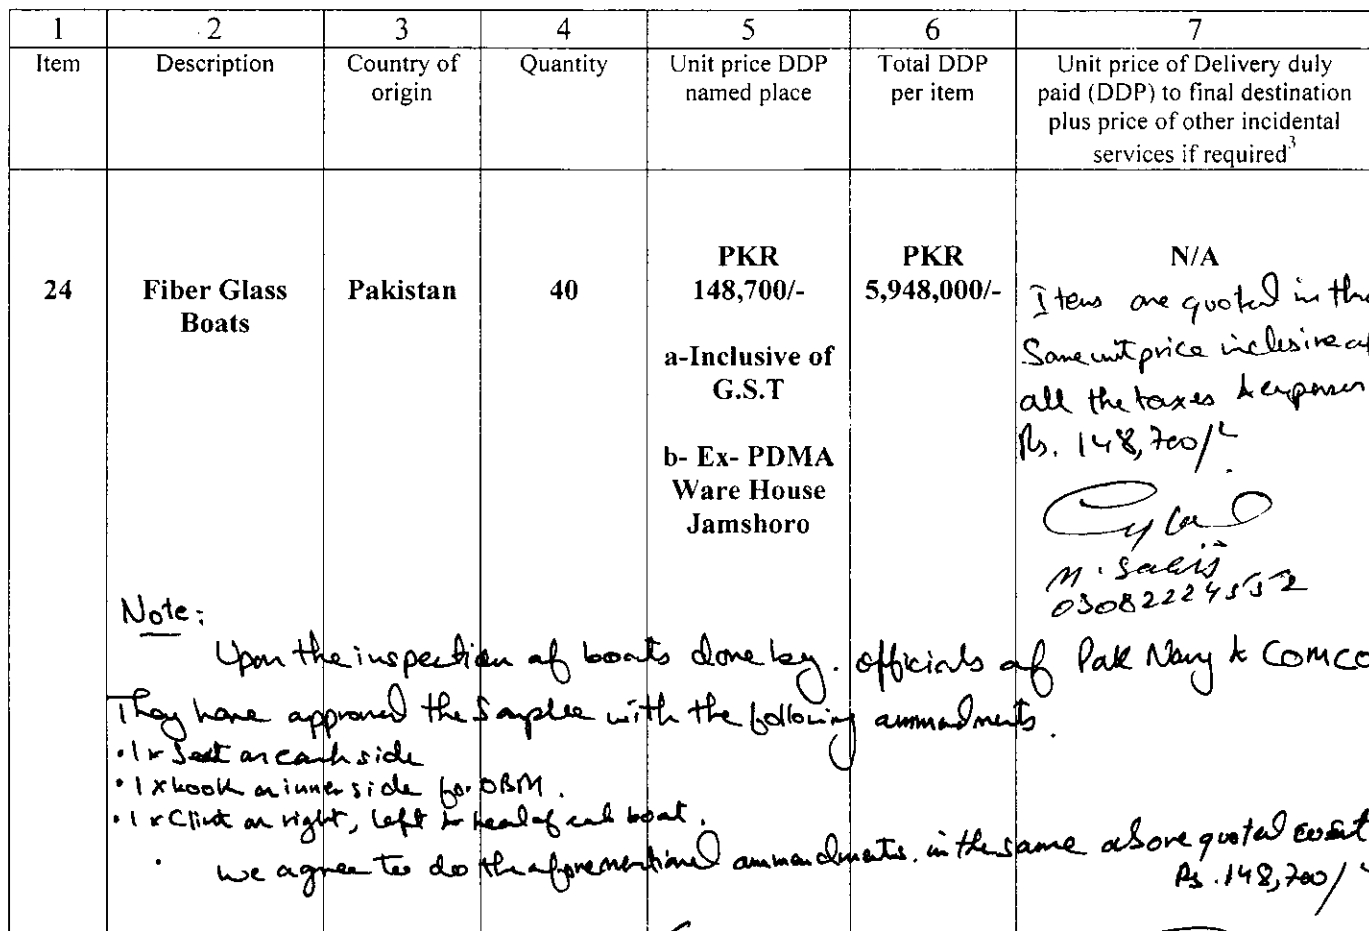 1 2 3 4 5 6 7
Item Description Country of origin Quantity Unit price DDP named place Total DDP per item Unit price of Delivery duly paid (DDP) to final destination plus price of other incidental services if required3
24 Fiber Glass Boats Pakistan 40 PKR 148,700/- PKR 5,948,000/- N/A
a-Inclusive of
G.S.T
b- Ex- PDMA
Ware House
Jamshoro
Items are quoted in the
Same unit price inclusive of
all the taxes & expenses
Rs. 148,700/-
03082224552
Note:
Upon the inspection of boats done by officials of Pak Navy & COMCO
They have approved the Sample with the following ammendments.
• 1 x Seat on each side
• 1 x hook on inner side for OBM.
• 1 x on right, left & head of each boat.
we agree to do the aforementioned ammendments in the same above quoted
Rs. 148,700/-